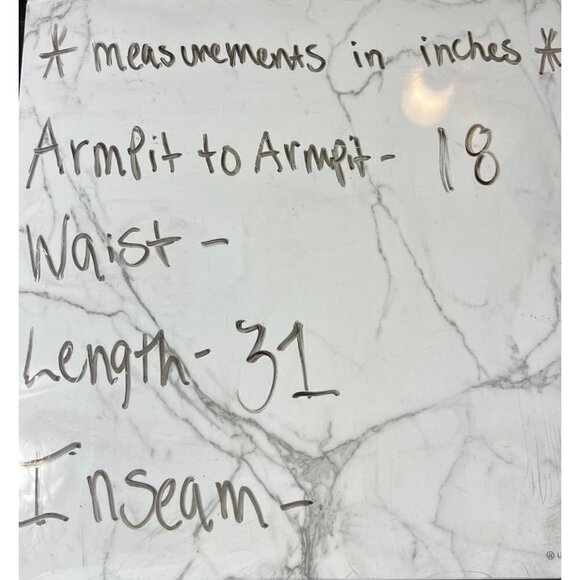 * measurements in inches *
Armpit to Armpit - 18
Waist -
Length - 31
Inseam -